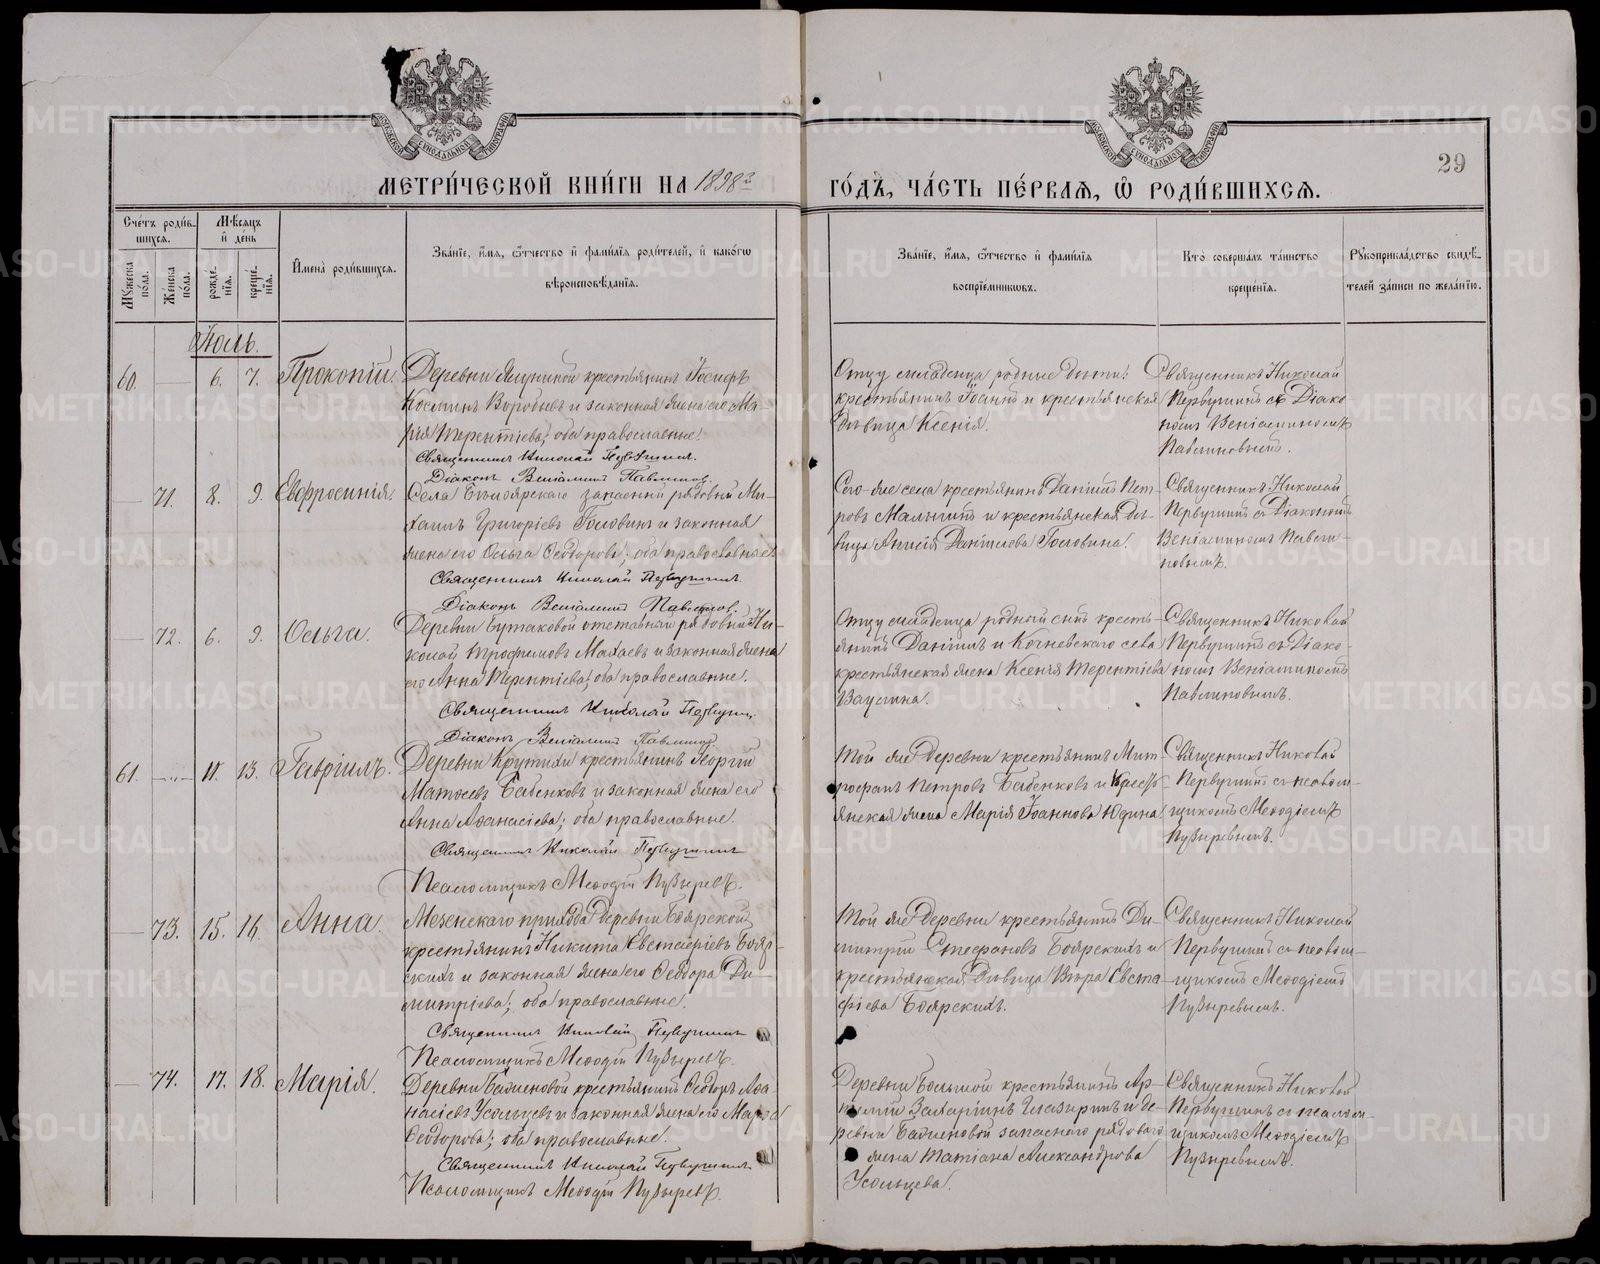 МЕТРИ́ЧЕСКОЙ КНИ́ГИ НА 1898 г.
ГО́ДЪ, ЧА́СТЬ ПЕ́РВАѦ, Ѽ РОДИ́ВШИХСѦ.
29
МОСКОВСКОЙ СѴНОДАЛЬНОЙ ТИПОГРАФІИ
МОСКОВСКОЙ СѴНОДАЛЬНОЙ ТИПОГРАФІИ
Сче́тъ роди́в-
шихсѧ.
Мѹжеска по́ла.
Же́нска по́ла.
Мѣ́сѧцъ
и҆ де́нь
рожде́нїѧ.
креще́нїѧ.
И҆мена̀ роди́вшихсѧ.
Зва́нїе, и҆́мѧ, ѻ҆́тчество и҆ фами́лїѧ роди́телей, и҆ како́гѡ
вѣроисповѣ́данїѧ.
Зва́нїе, и҆́мѧ, ѻ҆́тчество и҆ фами́лїѧ
воспрїе́мникѡвъ.
Кто̀ соверша́лъ та́инство
креще́нїѧ.
Рѹкоприкла́дство свидѣ́-
телей за́писи по жела́нїю.
Іюль.
60. — 6. 7. Прокопій.
Деревни Ялуниной крестьянинъ Іосифъ
Косминъ Воробьевъ и законная жена его Ма-
рія Терентіева; оба православные.
Священникъ Николай Первушинъ.
Діаконъ Веніаминъ Павлиновъ.
Отцу младенца родные дѣти:
крестьянинъ Іоаннъ и крестьянская
дѣвица Ксенія.
Священникъ Николай
Первушинъ съ Діако
номъ Веніаминомъ
Павлиновымъ.
— 71. 8. 9. Евфросинія.
Села Бѣлоярскаго запасный рядовый Ми-
хаилъ Григоріевъ Головинъ и законная
жена его Ольга Ѳеодорова; оба православные.
Священникъ Николай Первушинъ.
Діаконъ Веніаминъ Павлиновъ.
Сего-же села крестьянинъ Даніилъ Пет-
ровъ Малыгинъ и крестьянская дѣ-
вица Анисія Даніилова Головина.
Священникъ Николай
Первушинъ съ Діакономъ
Веніаминомъ Павли-
новымъ.
— 72. 6. 9. Ольга.
Деревни Бутаковой отставный рядовый Ни-
колай Трофимовъ Махаевъ и законная жена
его Анна Терентіева; оба православные.
Священникъ Николай Первушинъ.
Діаконъ Веніаминъ Павлиновъ.
Отцу младенца родный сынъ кресть-
янинъ Даніилъ и Кочневскаго села
крестьянская жена Ксенія Терентіева
Ваулина.
Священникъ Николай
Первушинъ съ Діако-
номъ Веніаминомъ
Павлиновымъ.
61. — 11. 13. Гавріилъ.
Деревни Крутихи крестьянинъ Георгій
Матѳеевъ Бабенковъ и законная жена его
Анна Аѳанасіева; оба православные.
Священникъ Николай Первушинъ
Псаломщикъ Меѳодій Пузыревъ.
Той же деревни крестьянинъ Мит
рофанъ Петровъ Бабенковъ и кресть-
янская жена Марія Іоаннова Юдина.
Священникъ Николай
Первушинъ съ псалом-
щикомъ Меѳодіемъ
Пузыревымъ.
— 73. 15. 16. Анна.
Мезенскаго прихода деревни Боярской
крестьянинъ Никита Евстафіевъ Бояр-
скихъ и законная жена его Ѳеодора Ди-
митріева; оба православные.
Священникъ Николай Первушинъ
Псаломщикъ Меѳодій Пузыревъ.
Той же деревни крестьянинъ Ди-
митрій Стефановъ Боярскихъ и
крестьянская дѣвица Вѣра Евста
фіева Боярскихъ.
Священникъ Николай
Первушинъ съ псалом-
щикомъ Меѳодіемъ
Пузыревымъ.
— 74. 17. 18. Марія.
Деревни Баженовой крестьянинъ Ѳедоръ Аѳа
насіевъ Усольцевъ и законная жена его Марѳа
Ѳеодорова; оба православные.
Священникъ Николай Первушинъ
Псаломщикъ Меѳодій Пузыревъ.
Деревни Большой крестьянинъ Ар-
темій Захаринъ Глазыринъ и де-
ревни Баженовой запаснаго рядоваго
жена Татіана Александрова
Усольцева.
Священникъ Николай
Первушинъ съ псалом-
щикомъ Меѳодіемъ
Пузыревымъ.
METRIKI.GASO-URAL.RU